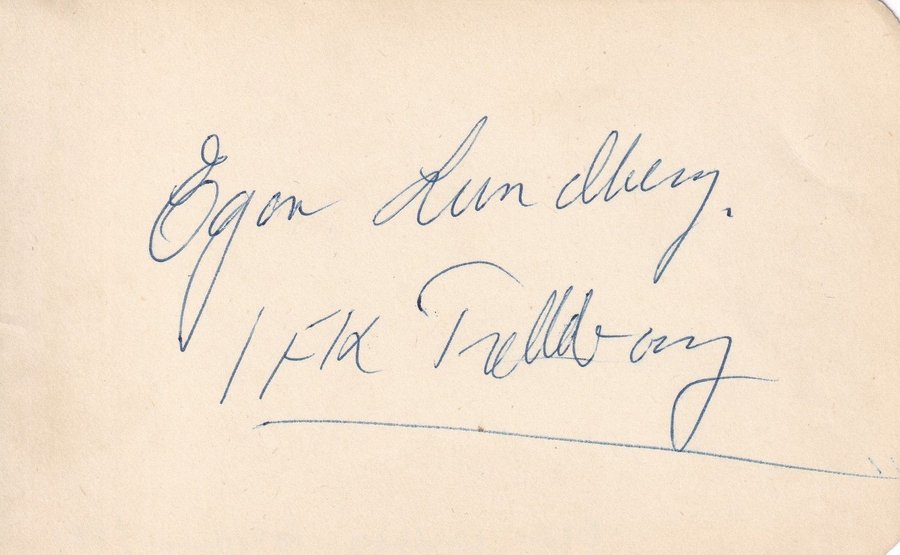 Egon Lundberg.
IFK Trelleborg